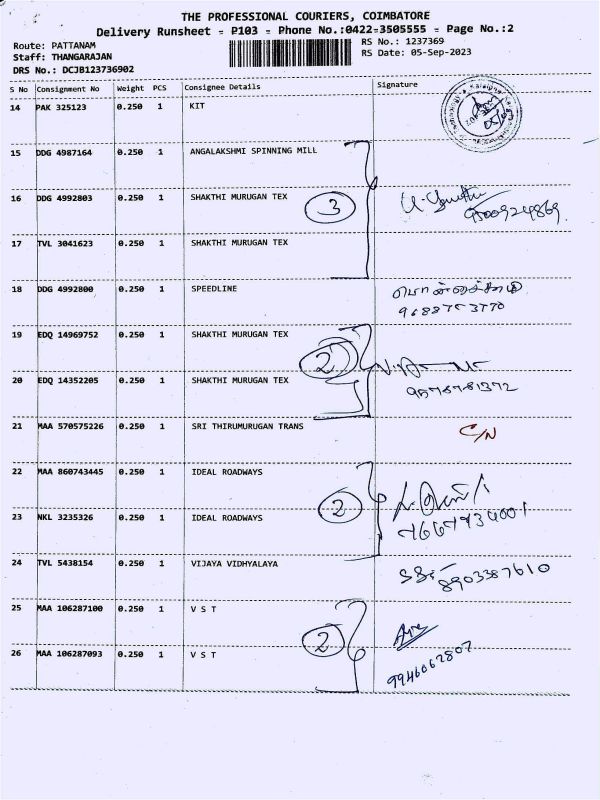 THE PROFESSIONAL COURIERS, COIMBATORE
Delivery Runsheet = P103 = Phone No.:0422=3505555 = Page No.:2
Route: PATTANAM
RS No.: 1237369
Staff: THANGARAJAN
RS Date: 05-Sep-2023
DRS No.: DCJB123736902
S No Consignment No Weight PCS Consignee Details Signature
14 PAK 325123 0.250 1 KIT
15 DDG 4987164 0.250 1 ANGALAKSHMI SPINNING MILL
16 DDG 4992803 0.250 1 SHAKTHI MURUGAN TEX
3
17 TVL 3041623 0.250 1 SHAKTHI MURUGAN TEX
18 DDG 4992800 0.250 1 SPEEDLINE
19 EDQ 14969752 0.250 1 SHAKTHI MURUGAN TEX
2
20 EDQ 14352205 0.250 1 SHAKTHI MURUGAN TEX
21 MAA 570575226 0.250 1 SRI THIRUMURUGAN TRANS C/N
22 MAA 860743445 0.250 1 IDEAL ROADWAYS
2
23 NKL 3235326 0.250 1 IDEAL ROADWAYS
24 TVL 5438154 0.250 1 VIJAYA VIDHYALAYA
8903387610
25 MAA 106287100 0.250 1 V S T
2
26 MAA 106287093 0.250 1 V S T
9946062807